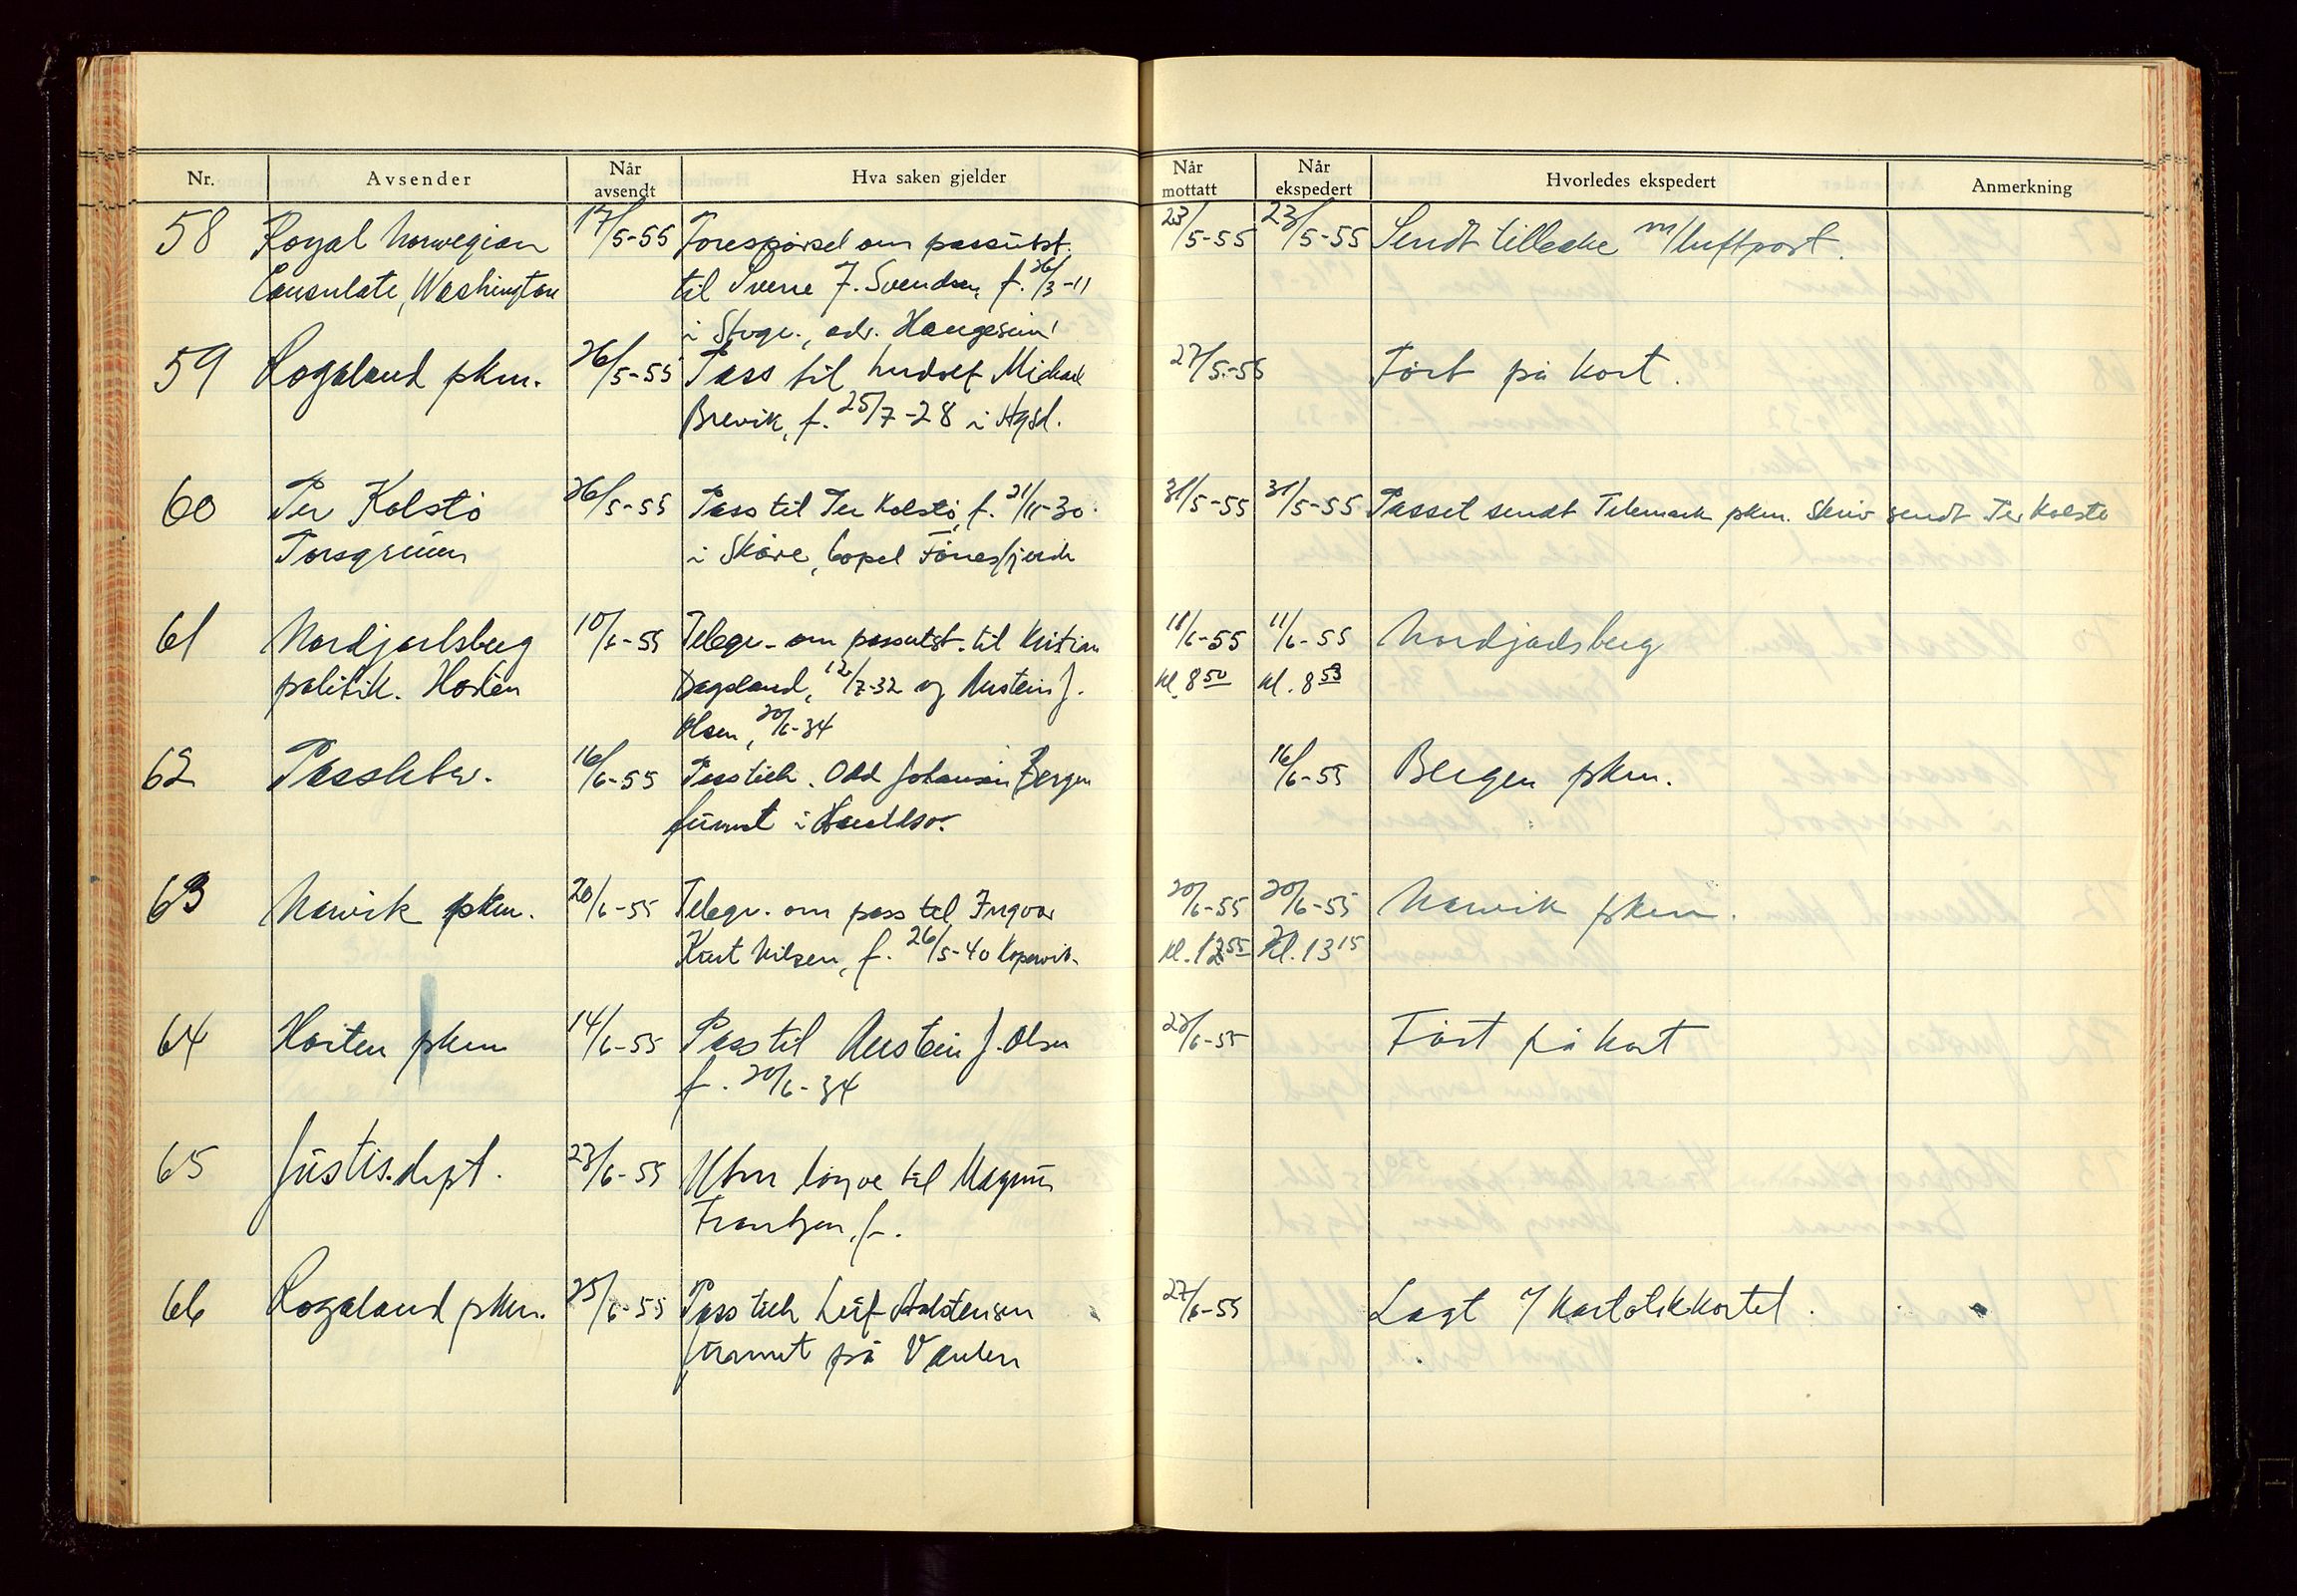 Nr. Avsender Når avsendt Hva saken gjelder Når mottatt Når ekspedert Hvorledes ekspedert Anmerkning
58 Royal Norwegian 17/5-55 Forespørsel om passutst. 23/5-55 23/5-55 Sendt tilbake m/luftpost.
Consulate, Washington til Sverre J. Svendsen, f. 26/3-11
i Skage., adr. Haugesund
59 Rogaland pkm. 26/5-55 Pass til Michael 27/5-55 Ført på kort.
Brevik, f. 25/7-28 i Hgsd.
60 Per Kolstø 26/5-55 Pass til Per Kolstø, f. 21/11-30 31/5-55 31/5-55 Passet sendt Telemark pkm. Skriv sendt Per Kolstø
Porsgrunn i Skåre, bopel Førresfjorden
61 Nordjarlsberg 10/6-55 Telegr. om passutst. til Kristian 11/6-55 11/6-55 Nordjarlsberg
politik. Horten Dagsland, 12/7-32 og Austein J. kl. 8 50 kl. 8 53
Olsen, 20/6-34
62 16/6-55 Passtilh. Odd Johansen Bergen 16/6-55 Bergen pkm.
funnet i
63 Narvik pkm. 20/6-55 Telegr. om pass til Ingvar 20/6-55 20/6-55 Narvik pkm.
Kurt Nilsen, f. 26/5-40 Kopervik. kl. 12 55 Kl. 13 15
64 Horten pkm 14/6-55 Pass til Austein J. Olsen 27/6-55 Ført på kort
f. 20/6-34
65 Justis.dept. 23/6-55 til Magnus
Frantzen, f.
66 Rogaland pkm. 25/6-55 Pass tilh. Leif Halstensen 27/6-55 Lagt i/ kartotekkortet.
funnet på